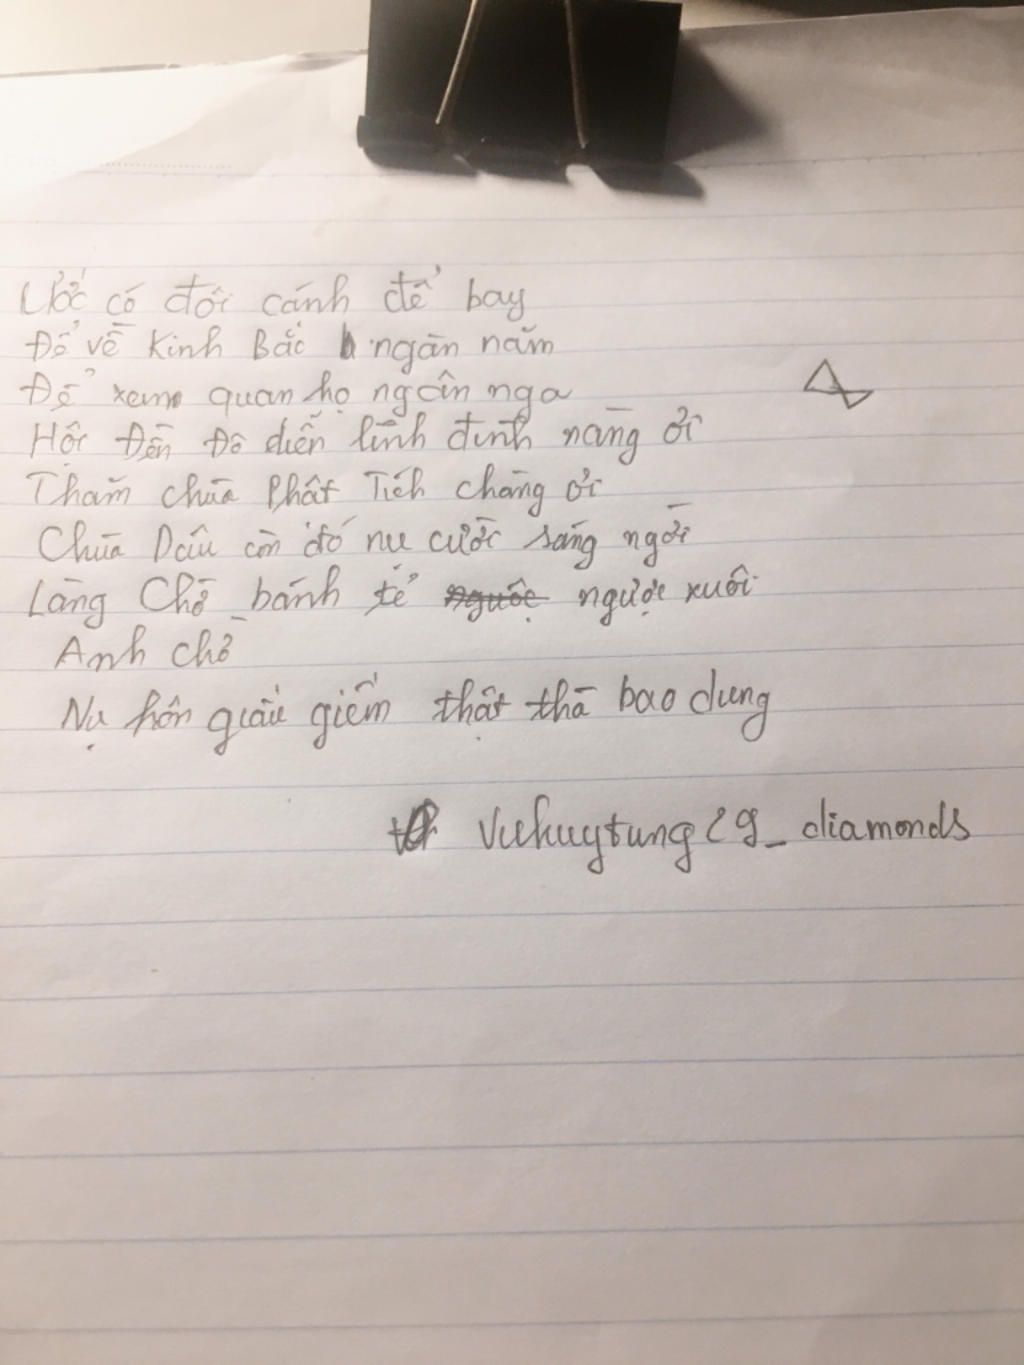 Ước có đôi cánh để bay
Để về Kinh Bắc ngàn năm
Để xem quan họ ngân nga
Hội Đền Đô diễn linh đình nàng ơi
Thăm chùa Phật Tích chàng ơi
Chùa Dâu còn đó nụ cười sáng ngời
Làng Chờ bánh tẻ ngược xuôi
Anh chờ
Nụ hôn giấu giếm thật thà bao dung
Vuhuytung29_diamonds